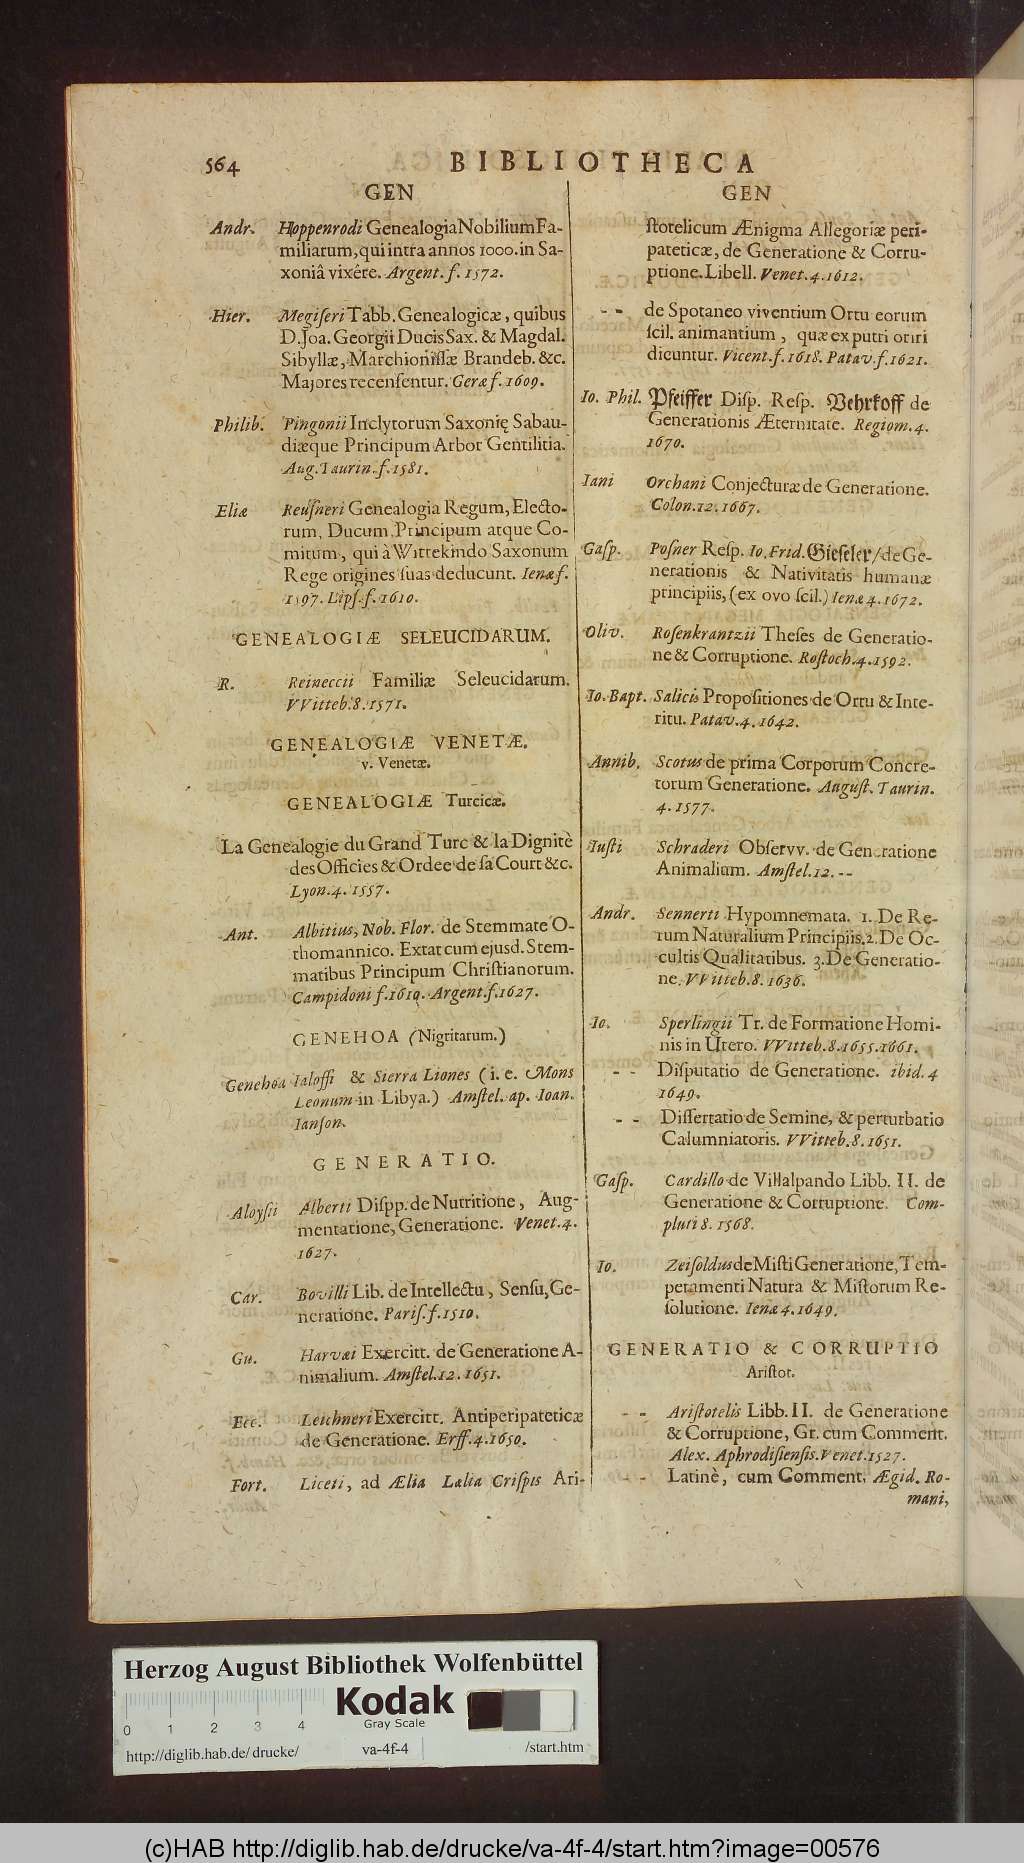 564 BIBLIOTHECA
GEN
Andr. Hoppenrodi Genealogia Nobilium Fa-
miliarum, qui intra annos 1000. in Sa-
xoniâ vixêre. Argent. f. 1572.
Hier. Megiſeri Tabb. Genealogicæ, quibus
D. Joa. Georgii Ducis Sax. & Magdal.
Sibyllæ, Marchioniſſæ Brandeb. &c.
Majores recenſentur. Geræ f. 1609.
Philib. Pingonii Inclytorum Saxonię Sabau-
diæque Principum Arbor Gentilitia.
Aug. Taurin. f. 1581.
Eliæ Reuſneri Genealogia Regum, Electo-
rum, Ducum, Principum atque Co-
mitum, qui à Wittekindo Saxonum
Rege origines ſuas deducunt. Ienæ f.
1597. Lipſ. f. 1610.
GENEALOGIÆ SELEUCIDARUM.
R. Reineccii Familiæ Seleucidarum.
VVitteb. 8. 1571.
GENEALOGIÆ VENETÆ.
v. Venetæ.
GENEALOGIÆ Turcicæ.
La Genealogie du Grand Turc & la Dignitè
des Officies & Ordee de ſa Court &c.
Lyon. 4. 1557.
Ant. Albitius, Nob. Flor. de Stemmate O-
thomannico. Extat cum ejusd. Stem-
matibus Principum Chriſtianorum.
Campidoni f. 1610. Argent. f. 1627.
GENEHOA (Nigritarum.)
Genehoa Ialoffi & Sierra Liones (i. e. Mons
Leonum in Libya.) Amſtel. ap. Ioan.
Ianſon.
GENERATIO.
Aloyſii Alberti Diſpp. de Nutritione, Aug-
mentatione, Generatione. Venet. 4.
1627.
Car. Bovilli Lib. de Intellectu, Senſu, Ge-
neratione. Pariſ. f. 1510.
Gu. Harvæi Exercitt. de Generatione A-
nimalium. Amſtel. 12. 1651.
Ecc. Leichneri Exercitt. Antiperipateticæ
de Generatione. Erff. 4. 1650.
Fort. Liceti, ad Ælia Lælia Criſpis Ari-
GEN
ſtotelicum Ænigma Allegoriæ peri-
pateticæ, de Generatione & Corru-
ptione. Libell. Venet. 4. 1612.
- - de Spotaneo viventium Ortu eorum
ſcil. animantium, quæ ex putri oriri
dicuntur. Vicent. f. 1618. Patav. f. 1621.
Io. Phil. Pfeiffer Diſp. Reſp. Vehrkoff de
Generationis Æternitate. Regiom. 4.
1670.
Iani Orchani Conjecturæ de Generatione.
Colon. 12. 1667.
Gaſp. Poſner Reſp. Io. Frid. Gieſeler / de Ge-
nerationis & Nativitatis humanæ
principiis, (ex ovo ſcil.) Ienæ 4. 1672.
Oliv. Roſenkrantzii Theſes de Generatio-
ne & Corruptione. Roſtoch. 4. 1592.
Io. Bapt. Salicis Propoſitiones de Ortu & Inte-
ritu. Patav. 4. 1642.
Annib. Scotus de prima Corporum Concre-
torum Generatione. Auguſt. Taurin.
4. 1577.
Iuſti Schraderi Obſervv. de Generatione
Animalium. Amſtel. 12. --
Andr. Sennerti Hypomnemata. 1. De Re-
rum Naturalium Principiis. 2. De Oc-
cultis Qualitatibus. 3. De Generatio-
ne. VVitteb. 8. 1636.
Io. Sperlingii Tr. de Formatione Homi-
nis in Utero. VVitteb. 8. 1655. 1661.
- - Diſputatio de Generatione. ibid. 4
1649.
- - Diſſertatio de Semine, & perturbatio
Calumniatoris. VVitteb. 8. 1651.
Gaſp. Cardillo de Villalpando Libb. II. de
Generatione & Corruptione. Com-
pluti 8. 1568.
Io. Zeiſoldus de Miſti Generatione, Tem-
peramenti Natura & Miſtorum Re-
ſolutione. Ienæ 4. 1649.
GENERATIO & CORRUPTIO
Ariſtot.
- - Ariſtotelis Libb. II. de Generatione
& Corruptione, Gr. cum Comment.
Alex. Aphrodiſienſis. Venet. 1527.
- - Latinè, cum Comment. Ægid. Ro-
mani,
Herzog August Bibliothek Wolfenbüttel
Kodak
Gray Scale
0 1 2 3 4
http://diglib.hab.de/drucke/ va-4f-4 /start.htm
(c)HAB http://diglib.hab.de/drucke/va-4f-4/start.htm?image=00576